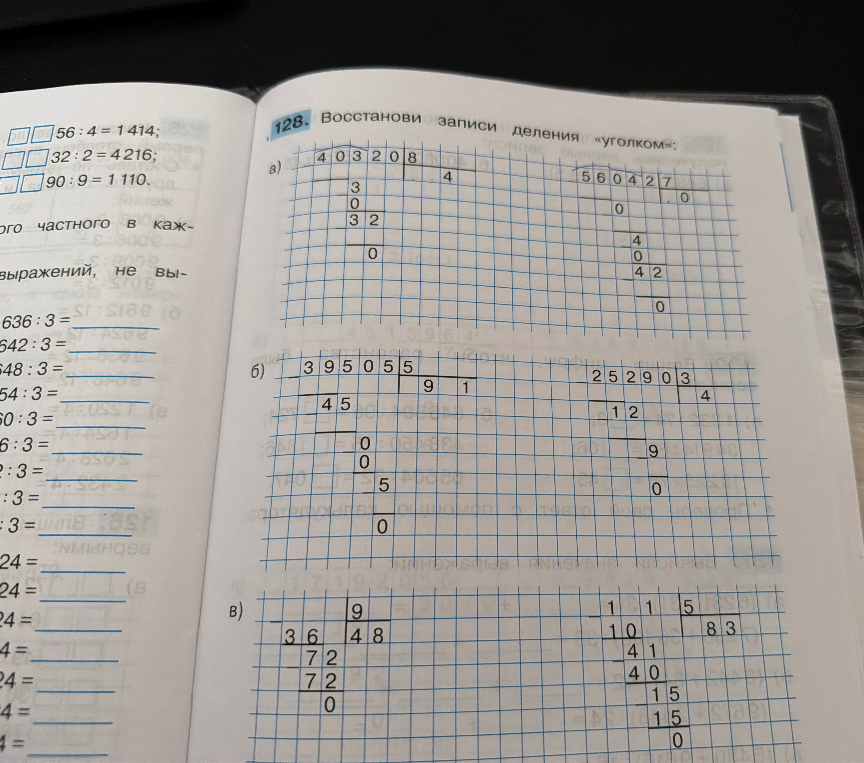 56 : 4 = 1 414;
32 : 2 = 4 216;
90 : 9 = 1 110.
ого частного в каж-
выражений, не вы-
636 : 3 =
642 : 3 =
648 : 3 =
54 : 3 =
60 : 3 =
6 : 3 =
2 : 3 =
: 3 =
: 3 =
24 =
24 =
24 =
4 =
24 =
4 =
4 =
128. Восстанови записи деления «уголком»:
а)
4 0 3 2 0 8
4
3
0
3 2
0
5 6 0 4 2 7
0
0
4
0
4 2
0
б)
3 9 5 0 5 5
9 1
4 5
0
0
5
0
2 5 2 9 0 3
4
1 2
9
0
в)
9
3 6 4 8
7 2
7 2
0
1 1 5
1 0 8 3
4 1
4 0
1 5
1 5
0